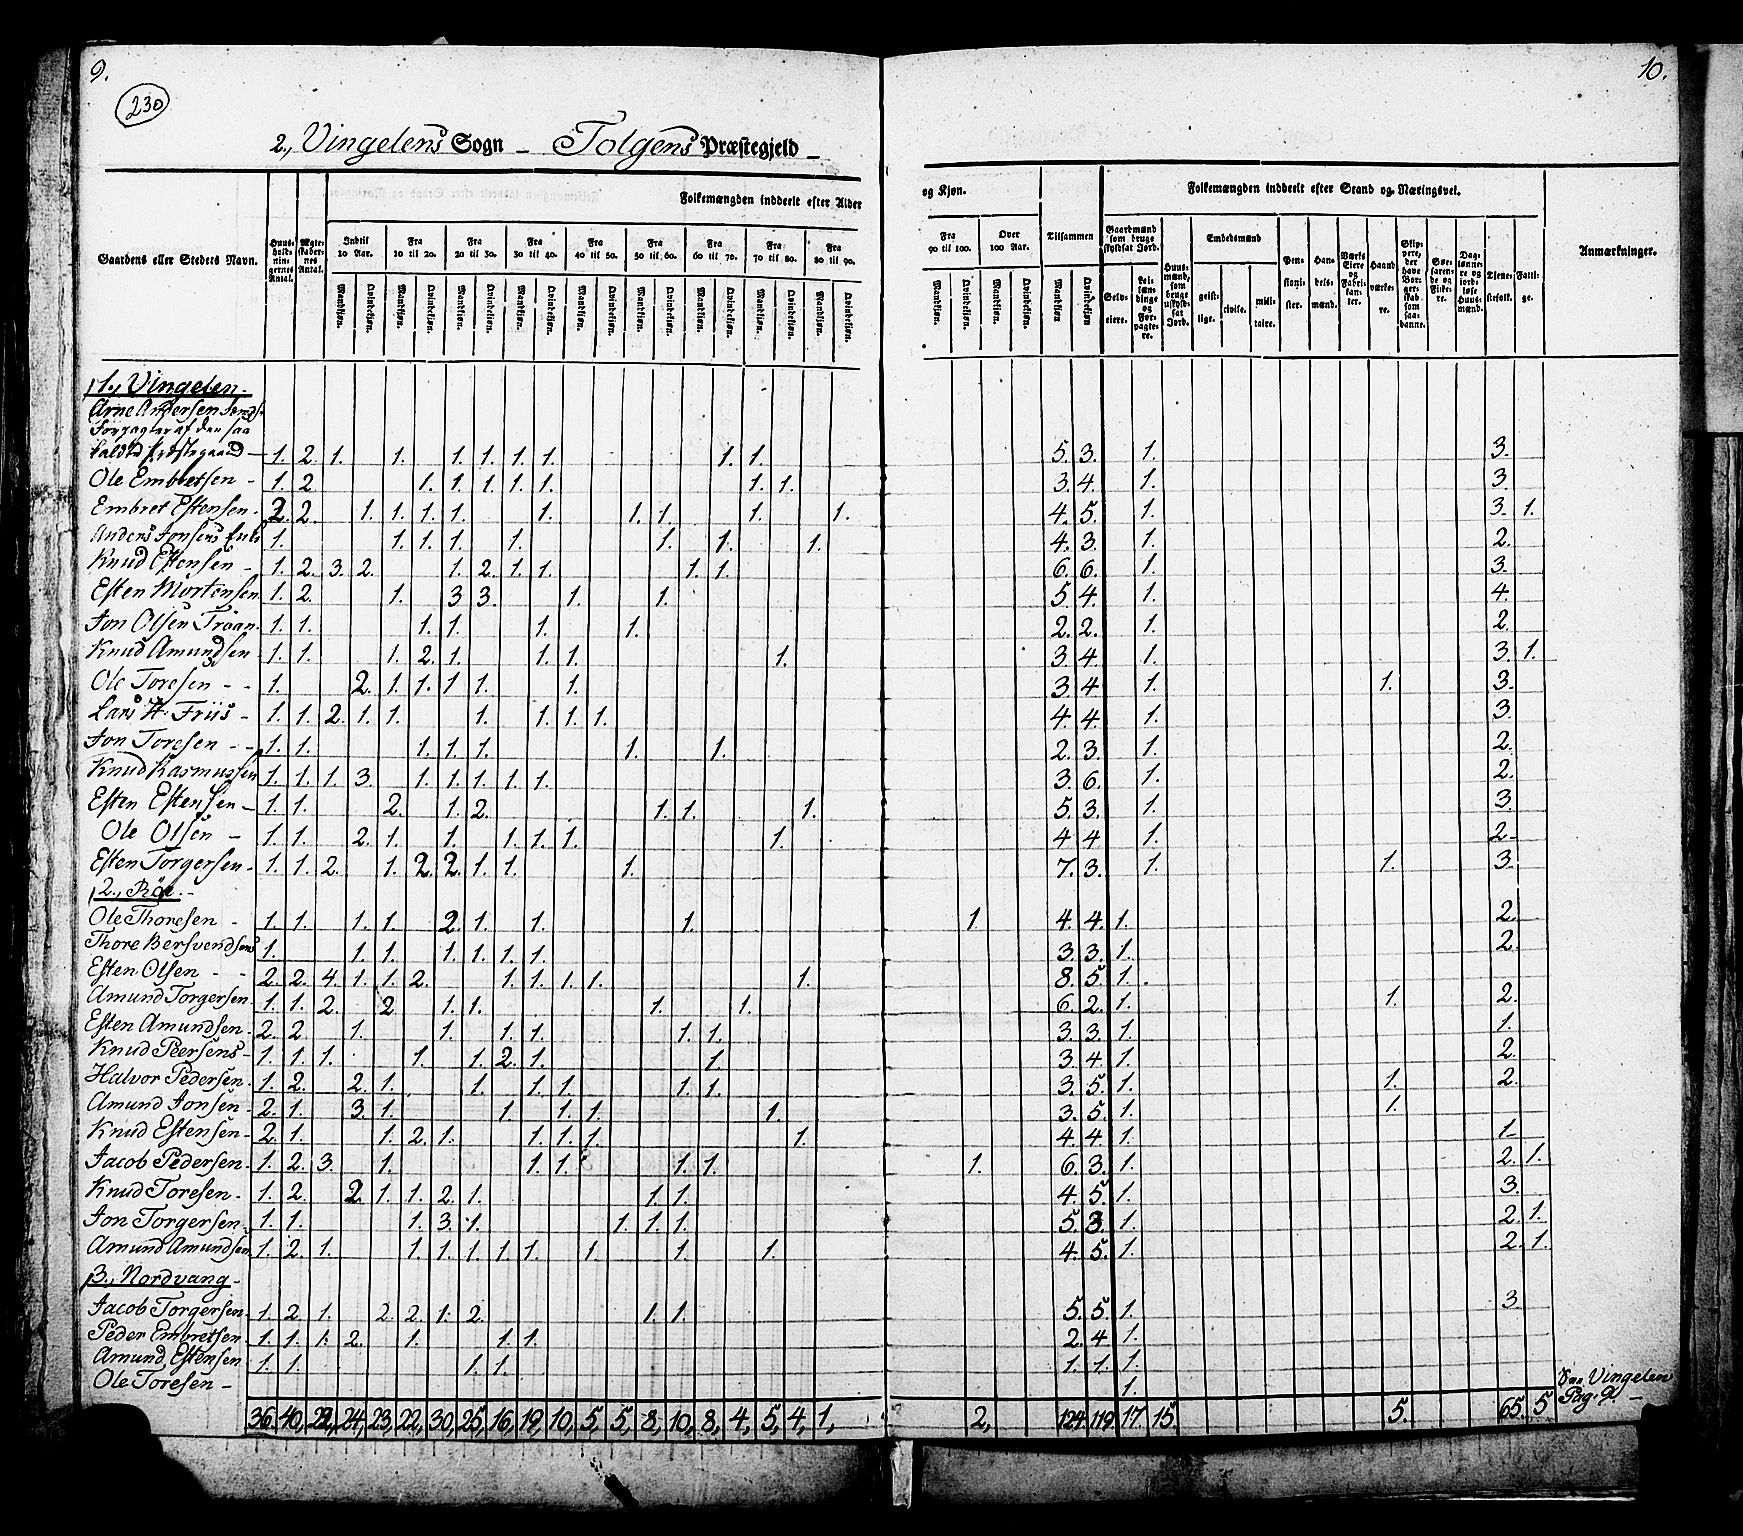 9.
10.
230
2., Vingelens Sogn - Tolgens Præstegjeld -
Gaardens eller Stedets Navn.
Huus-holdnin-gernes Antal.
Ægte-skaber-nes Antal.
Folkemængden inddeelt efter Alder og Kjøn.
Indtil 10 Aar.
Fra 10 til 20.
Fra 20 til 30.
Fra 30 til 40.
Fra 40 til 50.
Fra 50 til 60.
Fra 60 til 70.
Fra 70 til 80.
Fra 80 til 90.
Fra 90 til 100.
Over 100 Aar.
Tilsammen
Mandkjøn. Qvindekjøn.
Folkemængden inddeelt efter Stand og Næringsvei.
Gaardmænd som bruge skyldsat Jord.
Selveiere.
Leilændinge og Forpagtere.
Huusmænd, som bruge uskyldsat Jord.
Embedsmænd
geistlige.
civile.
militaire.
Pensionister.
Handelsmænd.
Værks Eiere og Fabrikanter.
Haandværkere.
Skippere, der have Borgerskab som saadanne.
Søefarende og Fiskere.
Daglønnere og jordløse Huusmænd.
Tjenestefolk.
Fattige.
Anmærkninger.
1., Vingelen -
Arne Andersen
Forpagter af den saa
kaldte Præstegaard - 1. 2. 1. 1. 1. 1. 1. 1. 1. 1. 5. 3. 1. 3.
Ole Embretsen - 1. 2 1. 1. 1. 1. 1. 1. 1. 3. 4. 1. 3
Embret Estensen - 2. 2. 1. 1. 1. 1. 1. 1. 1. 1. 1. 4. 5. 1. 3. 1.
Anders Jonsens Enke 1. 1. 1. 1. 1. 1. 1. 1. 4. 3. 1. 2.
Knud Estensen - 1. 2. 3. 2. 1. 2. 1. 1. 1. 1. 6. 6. 1. 3.
Esten Mortensen 1. 2. 1. 3 3. 1. 1. 5. 4. 1. 4.
Jon Olsen Trøan. 1. 1. 1. 1. 1. 1. 2. 2. 1. 2.
Knud Amundsen 1. 1. 1. 2. 1. 1. 1. 1. 3. 4. 1. 3. 1.
Ole Toresen - - 1. 2. 1. 1. 1 1. 1. 3. 4 1. 1. 3.
Lars H. Friis - 1. 1. 2. 1. 1. 1. 1. 1. 1. 4. 4. 1. 3.
Jon Toresen - - 1. 1. 1. 1. 1. 1. 1. 2. 3. 1. 2.
Knud Rasmussen 1. 1. 1. 3. 1. 1. 1. 1. 1. 3. 6. 1. 2.
Esten Estensen - 1. 1. 2. 1. 2. 1. 1. 1. 5. 3. 1. 3.
Ole Olsen - 1. 1. 2. 1. 1. 1. 1. 1. 1. 4 4 1. 2-
Esten Torgersen - 1. 1. 2. 1. 2. 2. 1. 1. 1. 7. 3. 1. 1. 3.
2., Röe. -
Ole Thoresen - 1. 1. 1. 1. 2. 1. 1. 1. 1 4. 4. 1. 2.
Thore Bersvendsens 1. 1. 1. 1. 1. 1. 1. 3. 3. 1. 2.
Esten Olsen - - 2. 2. 4. 1. 1. 2. 1. 1. 1. 1. 1. 8. 5. 1.
Amund Torgersen. 1. 1. 2. 2 1. 1. 1. 1. 6. 2. 1. 1. 2.
Esten Amundsen. 2. 2 1. 1. 1. 1. 1. 1. 3. 3. 1. 1.
Knud Peersens - 1. 1. 1. 1. 1. 2. 1. 1. 3. 4. 1. 2.
Halvor Pedersen. 1. 2. 2. 1. 1. 1. 1. 1. 1. 3. 5. 1. 1. 2.
Amund Jonsen - 2. 1. 3. 1. 1. 1. 1. 1. 3. 5. 1. 1.
Knud Estensen - 2. 1. 1. 2. 1. 1. 1. 1. 1. 4. 4. 1. 1.
Jacob Pedersen. 1. 2. 3. 1. 1. 1. 1. 1. 1. 6. 3. 1. 2. 1.
Knud Toresen. 1. 2. 2. 1. 1. 2. 1. 1. 1. 4. 5. 1. 3.
Jon Torgersen. 1. 1. 1. 3. 1. 1. 1. 1. 5. 3. 1. 2. 1.
Amund Amundsen 1. 2. 1. 1. 1. 1. 1. 1. 1. 1. 1. 4. 5. 1. 2. 1.
3., Nordvang -
Jacob Torgersen. 1. 2. 1. 2. 2. 1. 2. 1. 1. 5. 5. 1. 3.
Peder Embretsen. 1. 1. 1. 2. 1. 1. 1. 2. 4 1.
Amund Estensen 1. 1. 1. 1. 1. 1. 1.
Ole Toresen - 1.
36. 40, 22, 24, 23, 22, 30, 25, 16, 19, 10, 5, 5, 8, 10, 8, 4, 5, 4, 1, 2, 124. 119. 17. 15. 5. 65. 5
Vingelen
Pag: 9. -